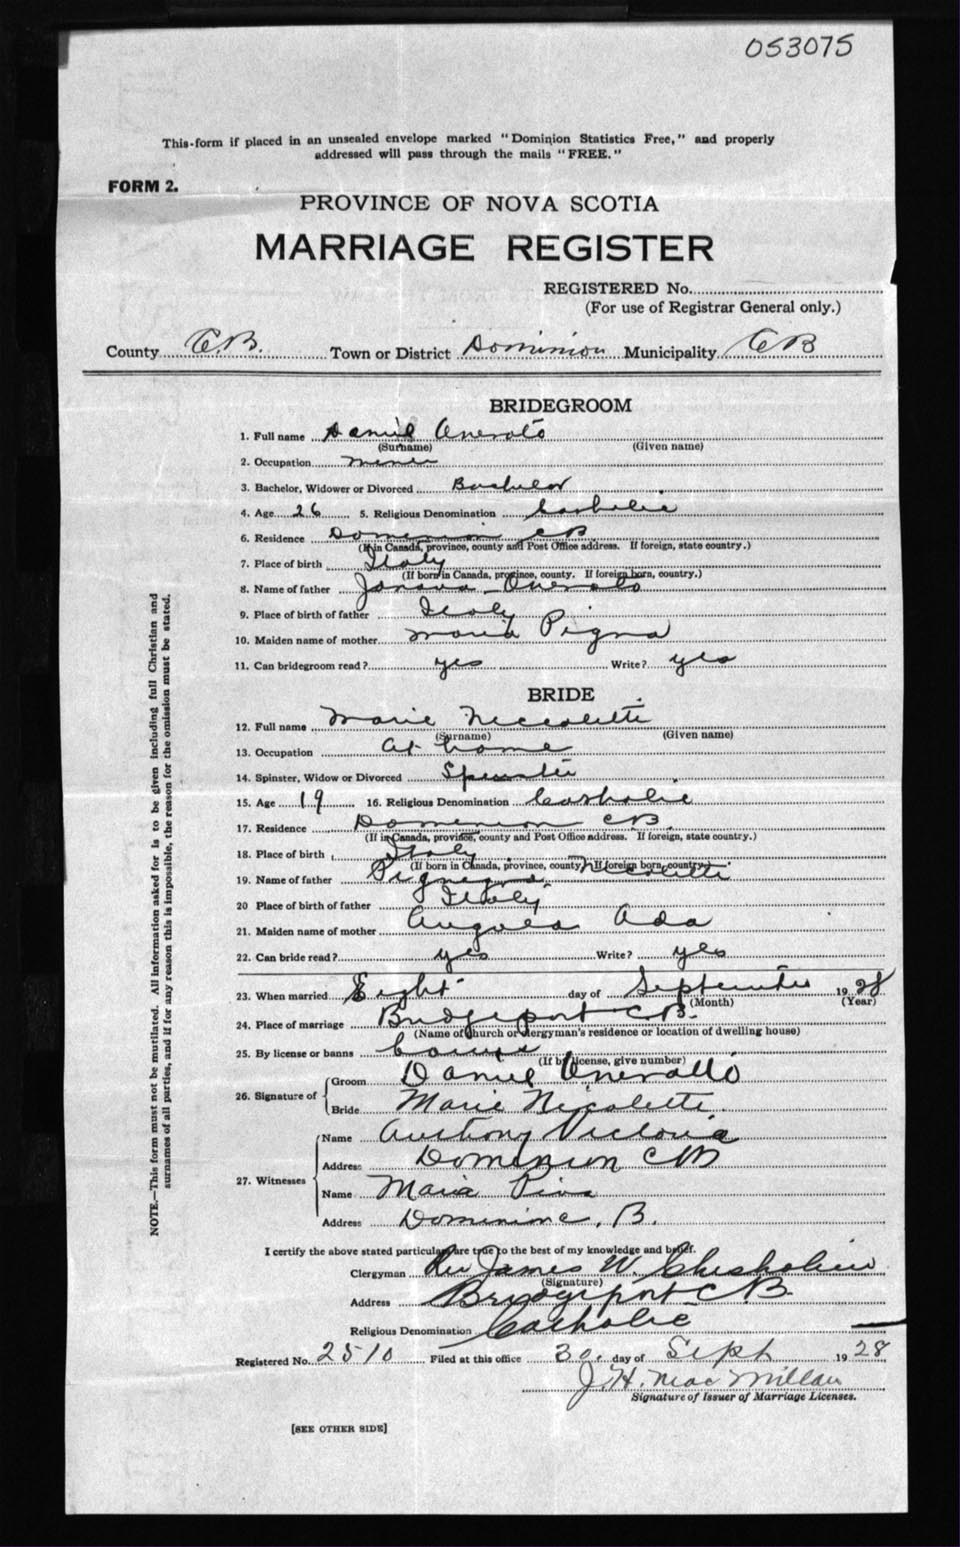 053075
This form if placed in an unsealed envelope marked "Dominion Statistics Free," and properly
addressed will pass through the mails "FREE."
FORM 2.
PROVINCE OF NOVA SCOTIA
MARRIAGE REGISTER
REGISTERED No.
(For use of Registrar General only.)
County C.B. Town or District Dominion Municipality CB
BRIDEGROOM
1. Full name Daniel Oneroto
(Surname) (Given name)
2. Occupation miner
3. Bachelor, Widower or Divorced Bachelor
4. Age 26 5. Religious Denomination Catholic
6. Residence Dominion CB
(If in Canada, province, county and Post Office address. If foreign, state country.)
7. Place of birth Italy
(If born in Canada, province, county. If foreign born, country.)
8. Name of father Oneroto
9. Place of birth of father Italy
10. Maiden name of mother Maria Pigna
11. Can bridegroom read? yes Write? yes
BRIDE
12. Full name Marie Niccoletti
(Surname) (Given name)
13. Occupation at home
14. Spinster, Widow or Divorced Spinster
15. Age 19 16. Religious Denomination Catholic
17. Residence Dominion CB.
(If in Canada, province, county and Post Office address. If foreign, state country.)
18. Place of birth Italy
(If born in Canada, province, county. If foreign born, country.)
19. Name of father Nicoletti
20 Place of birth of father Italy
21. Maiden name of mother Ada
22. Can bride read? yes Write? yes
23. When married Eight day of September 1928
(Month) (Year)
24. Place of marriage Bridgeport C.B.
(Name of church or clergyman's residence or location of dwelling house)
25. By license or banns
(If by license, give number)
26. Signature of Groom Daniel Oneratto
Bride Marie Nicoletti
27. Witnesses Name Anthony Victoria
Address Dominion CB
Name Maria Piva
Address Dominion C. B.
I certify the above stated particulars are true to the best of my knowledge and belief.
Clergyman Rev James W. Chisholm
(Signature)
Address Bridgeport CB.
Religious Denomination Catholic
Registered No. 2510 Filed at this office 30. day of Sept 1928
J. H. MacMillan
Signature of Issuer of Marriage Licenses.
[SEE OTHER SIDE]
NOTE.—This form must not be mutilated. All information asked for is to be given including full Christian and
surnames of all parties, and if for any reason this is impossible, the reason for the omission must be stated.